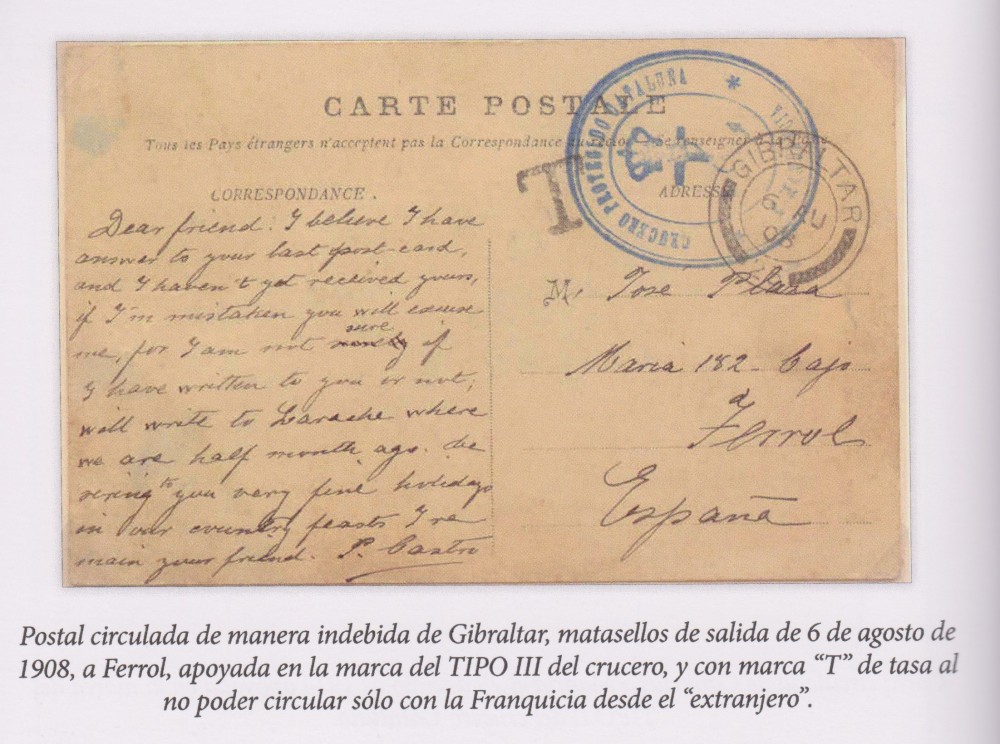 CARTE POSTALE
Tous les Pays étrangers n'acceptent pas la Correspondance au Se renseigner à la
CRUCERO PROTEGIDO CATALUÑA *
T
GIBRALTAR
AU
08
CORRESPONDANCE.
ADRESSE
Dear friend: I believe I have
answer to your last post-card,
and I haven't yet received yours,
if I'm mistaken you will excuse
me, for I am not sure if
I have written to you or not;
will write to Larache where
we are half month ago. De
siring to you very fine holidays
in our country feasts I re
main your friend. P. Castro
M. José Plaza
Maria 182 - bajo
a
Ferrol
España
Postal circulada de manera indebida de Gibraltar, matasellos de salida de 6 de agosto de
1908, a Ferrol, apoyada en la marca del TIPO III del crucero, y con marca “T” de tasa al
no poder circular sólo con la Franquicia desde el “extranjero”.